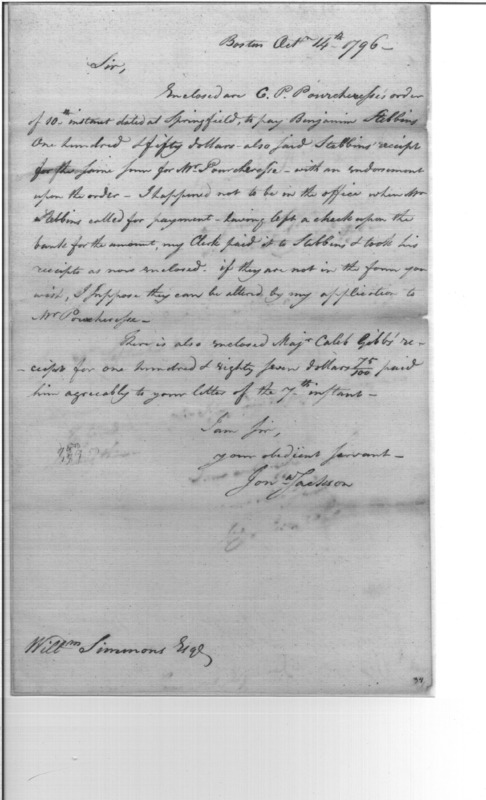 Boston Octr 14th 1796 -
Sir,
Enclosed are C. P. Pourcheresse's order
of 10th instant dated at Springfield, to pay Benjamin Stebbins
One hundred & fifty dollars - also said Stebbins' receipt
for the same sum for Mr Pourcheresse - with an endorsement
upon the order - I happened not to be in the office when Mr
Stebbins called for payment - having left a check upon the
bank for the amount, my Clerk paid it to Stebbins & took his
receipts as now enclosed. if they are not in the form you
wish, I suppose they can be altered by my application to
Mr Pourcheresse -
There is also enclosed Majr Caleb Gibbs' re-
-ceipt for one hundred & eighty seven dollars 75/100 paid
him agreeably to your letter of the 7th instant -
I am Sir,
your obedient servant -
Jona Jackson
Willm Simmons Esqr